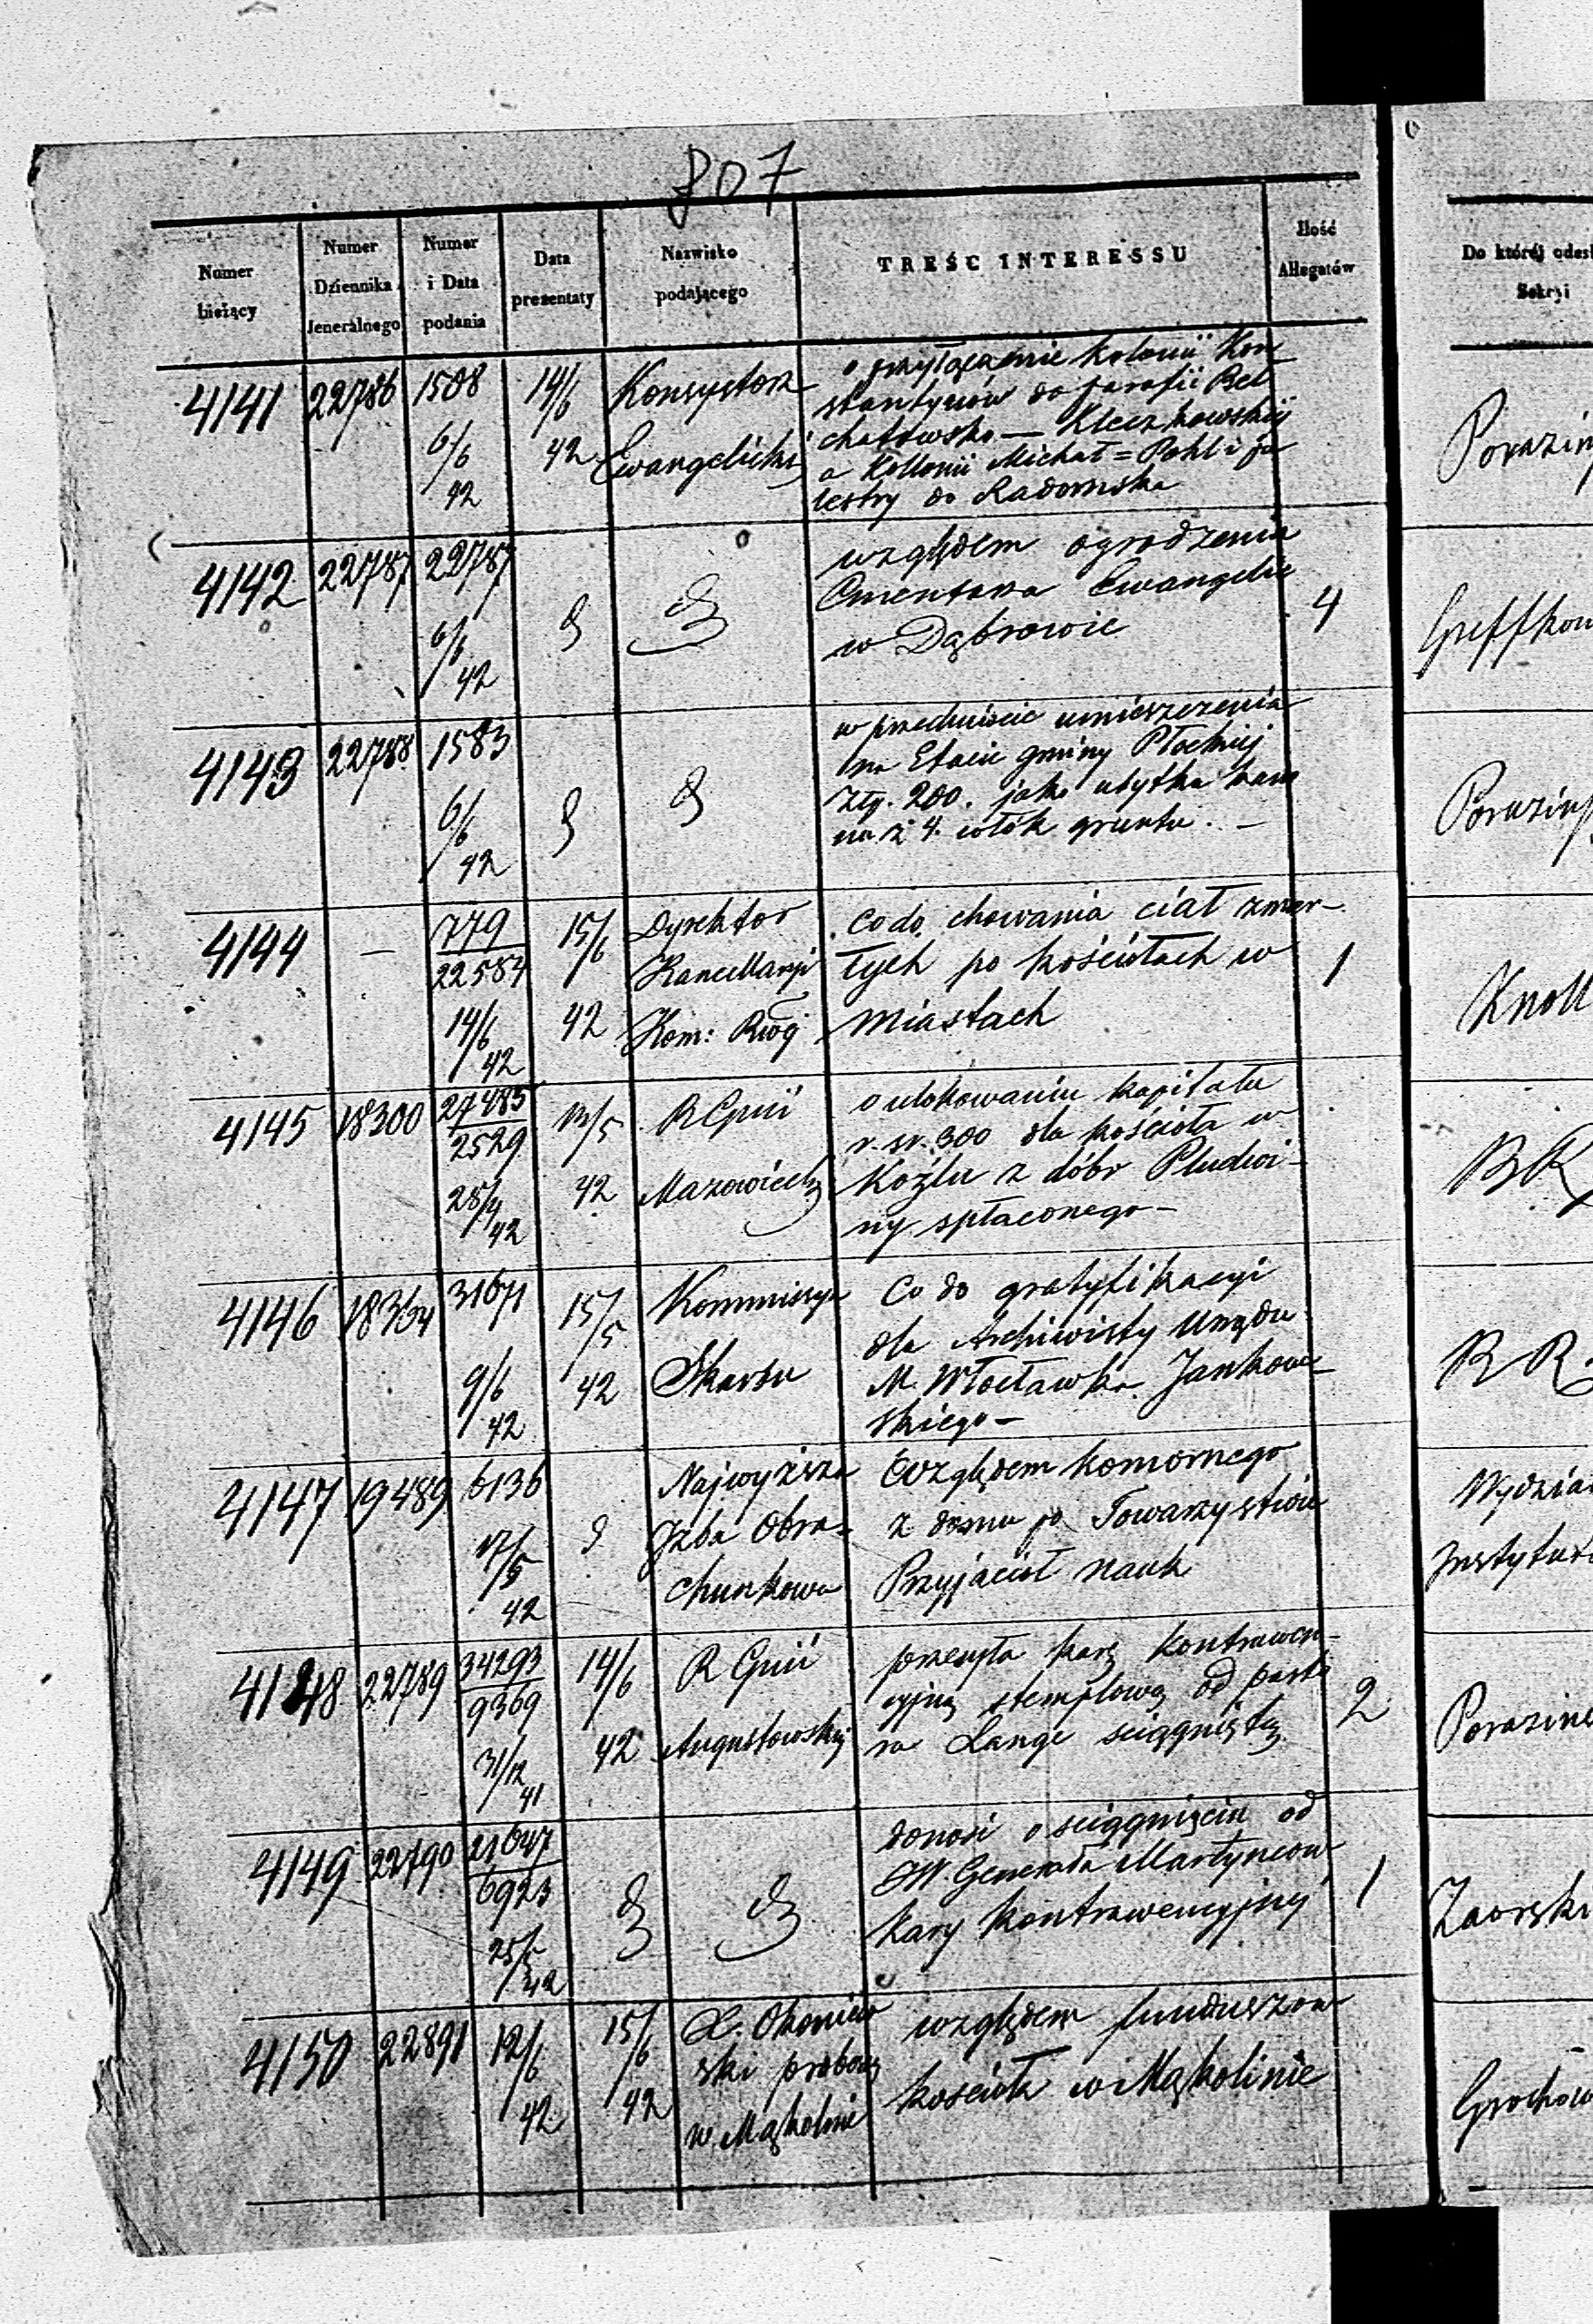 807
Numer bieżący
Numer Dziennika Jeneralnego
Numer i Data podania
Data prezentaty
Nazwisko podającego
TREŚĆ INTERESSU
Ilość Allegatów
Do której odesł
Sekcyi
4141 22786 1508 6/6 42 14/6 42
Konsystorz
Ewangelicki
o przyłączenie kolonii Kon
stantynów do parafii Beł
chatowsko — Kleczkowskiej
a Kollonii Michał = Pohl i
do Radomska
4142 22787 22787 6/6 42
względem ogrodzenia
Cmentarza Ewangelic
w Dąbrowie
4
4143 22788 1583 6/6 42
w przedmiocie umieszczenia
na Etacie gminy Płockiej
Złp. 200. jako użytku
z 4. włók gruntu. —
4144 — 779/22584 14/6 42 15/6 42
Dyrektor
Kancellaryi
Kom: Rwój
Co do chowania ciał zmar-
łych po kościołach w
miastach
1
Knoll
4145 18300 27485/2529 28/4 42 13/5 42
R Gnii
Mazowieck
o ulokowaniu kapitału
r. sr. 300 dla kościoła w
Koźlu z dóbr Pludwi-
ny spłaconego —
4146 18364 31671 9/6 42 15/5 42
Kommissya
Skarbu
Co do gratyfikacyi
dla Archiwisty Urzędu
M. Włocławka Jankow-
skiego —
4147 19489 6136 17/5 42
Najwyższa
Izba Obra-
chunkowa
Względem komornego
z domu po Towarzystwie
Przyjaciół nauk
Wydział
Instytut
4148 22789 34293/9369 31/12 41 14/6 42
R Gnii
Augustowskiej
przesyła karę kontrawen-
cyjną stemplową od pasto
ra Lange ściągniętą
2
4149 22790 21647/6923 25/5 42
donosi o ściągnięciu od
JW. Generała Martynow
kary kontrawencyjnej
1
Zaorski
4150 22891 12/6 42 15/6 42
X. Okoniew
ski probosz
w Mąkolinie
względem funduszow
kościoła w Mąkolinie
Grochow